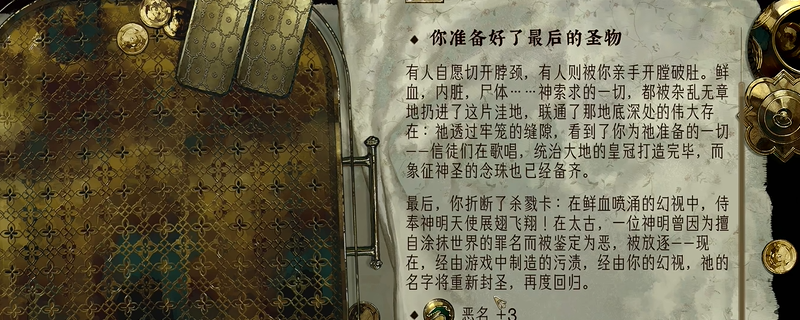 你准备好了最后的圣物
有人自愿切开脖颈，有人则被你亲手开膛破肚。鲜
血，内脏，尸体……神索求的一切，都被杂乱无章
地扔进了这片洼地，联通了那地底深处的伟大存
在：祂透过牢笼的缝隙，看到了你为祂准备的一切
——信徒们在歌唱，统治大地的皇冠打造完毕，而
象征神圣的念珠也已经备齐。
最后，你折断了杀戮卡：在鲜血喷涌的幻视中，侍
奉神明天使展翅飞翔！在太古，一位神明曾因为擅
自涂抹世界的罪名而被鉴定为恶，被放逐——现
在，经由游戏中制造的污渍，经由你的幻视，祂的
名字将重新封圣，再度回归。
恶名 +3